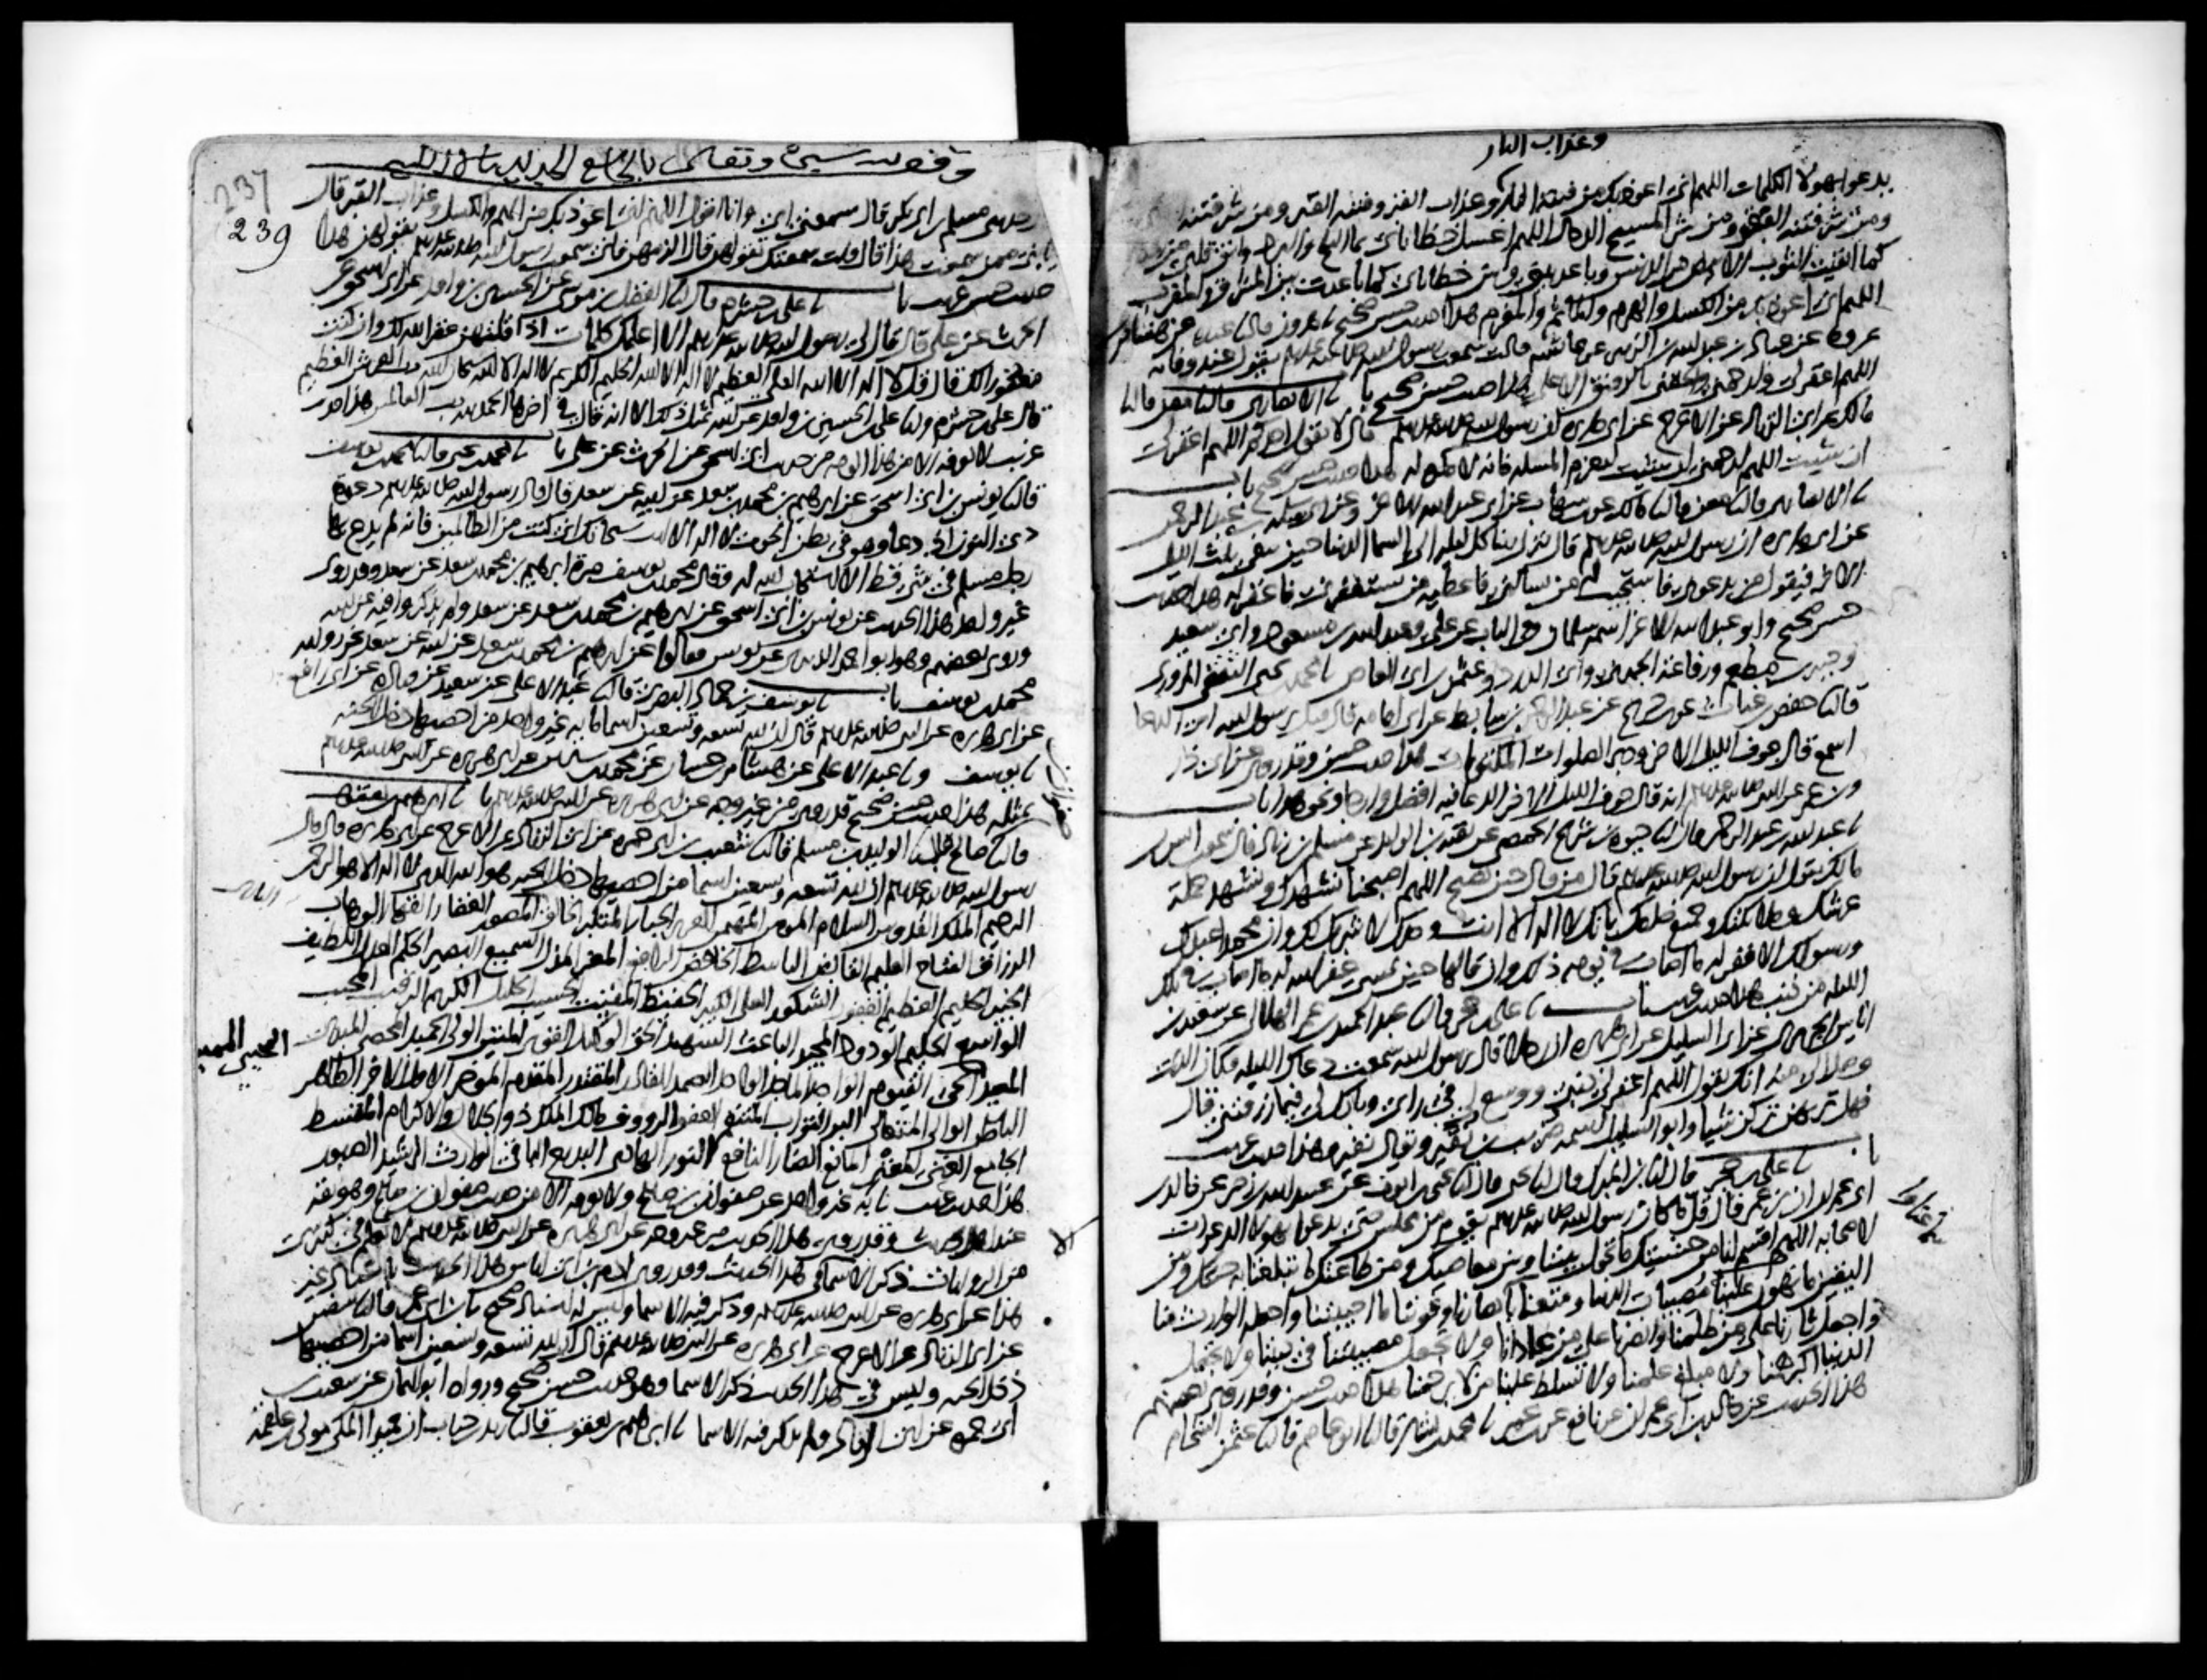 وعذاب النار
يدعوا بهولا الكلمات اللهم انى اعوذ بك من فتنه النار وعذاب القبر وفتنه القبر ومن شر فتنه
ومن شر فتنه الفقر ومن شر المسيح الدجال اللهم اغسل خطاياى بما الثلج والبرد وانق قلبى من
كما انقيت الثوب الابيض من الدنس وباعد بينى وبين خطاياى كما باعدت بين المشرق والمغرب
اللهم انى اعوذ بك من الكسل والهرم والماثم والمغرم هذا حديث حسن صحيح هرون قال نا عبده عن هشام بن
عروه عن عباد بن عبد الله بن الزبير عن عايشه قالت سمعت رسول الله صلى الله عليه وسلم يقول عند وفاته
اللهم اغفر لى وارحمنى والحقنى بالرفيق الاعلى هذا حديث حسن صحيح باب نا الانصارى قال نا معن قال نا
مالك عن ابى الزناد عن الاعرج عن ابى هريره ان رسول الله صلى الله عليه وسلم قال لا يقول احدكم اللهم اغفر لى
ان شيت اللهم ارحمنى ان شيت ليعزم المسله فانه لا مكره له هذا حديث حسن صحيح باب
نا الانصارى قال نا معن قال نا مالك عن ابن شهاب عن ابى عبد الله الاغر وعن ابى سلمه بن عبد الرحمن
عن ابى هريره ان رسول الله صلى الله عليه وسلم قال ينزل ربنا كل ليله الى السما الدنيا حين يبقى ثلث الليل
الاخر فيقول من يدعونى فاستجيب له من يسالنى فاعطيه من يستغفرنى فاغفر له هذا حديث
حسن صحيح وابو عبد الله الاغر اسمه سلمان وفى الباب عن على وعبد الله بن مسعود وابى سعيد
وجبير بن مطعم ورفاعه الجهنى وابى الدردا وعثمن بن ابى العاص نا محمد بن يحيى الثقفى المروزى
قال نا حفص بن غياث عن ابن جريج عن عبد الرحمن بن سابط عن ابى امامه قال قيل يرسول الله اى الدعا
اسمع قال جوف الليل الاخر ودبر الصلوات المكتوبات هذا حديث حسن وقد روى عن ابى ذر
وابن عمر عن النبى صلى الله عليه وسلم انه قال جوف الليل الاخر الدعا فيه افضل وارجا ونحو هذا باب
نا عبد الله بن عبد الرحمن قال نا حيوه بن شريح الحمصى عن بقيه بن الوليد عن مسلم بن زياد قال سمعت انس بن
مالك يقول ان رسول الله صلى الله عليه وسلم قال من قال حين يصبح اللهم اصبحنا نشهدك ونشهد حمله
عرشك وملايكتك وجميع خلقك بانك لا اله الا انت وحدك لا شريك لك وان محمدا عبدك
ورسولك الا غفر له ما اصاب فى يومه ذلك وان قالها حين يمسى غفر الله له ما اصاب فى تلك
الليله من ذنب هذا حديث غريب باب نا على بن حجر قال نا عبد الحميد بن عمر الهلالى عن سعيد بن
اياس الجريرى عن ابى السليل عن ابى هريره ان رجلا قال يرسول الله سمعت دعاك الليله فكان الذى
وصل الى منه انك تقول اللهم اغفر لى ذنبى ووسع لى فى رايى وبارك لى فيما رزقتنى قال
فهل تراهن تركن شيا وابو السليل اسمه ضريب بن نقير ويقال نفير هذا حديث غريب
باب نا على بن حجر قال نا ابن المبرك قال نا يحيى بن ايوب عن عبيد الله بن زحر عن خالد بن
ابى عمران ان ابن عمر قال قل ما كان رسول الله صلى الله عليه وسلم يقوم من مجلس حتى يدعوا بهولا الدعوات
لاصحابه اللهم اقسم لنا من خشيتك ما يحول بيننا وبين معاصيك ومن طاعتك ما تبلغنا به جنتك ومن
اليقين ما تهون علينا مصيبات الدنيا ومتعنا باسماعنا وابصارنا وقوتنا ما احييتنا واجعله الوارث منا
واجعل ثارنا على من ظلمنا وانصرنا على من عادانا ولا تجعل مصيبتنا فى ديننا ولا تجعل
الدنيا اكبر همنا ولا مبلغ علمنا ولا تسلط علينا من لا يرحمنا هذا حديث حسن وقد روى بعضهم
هذا الحديث عن خالد بن ابى عمران عن نافع عن ابن عمر نا محمد بن بشار قال نا ابو عاصم قال نا عثمن الشحام
237
239
حدثنى مسلم بن ابى بكره قال سمعنى ابى وانا اقول اللهم انى اعوذ بك من الهم والكسل وعذاب القبر قال
يا بنى ممن سمعت هذا قال قلت سمعتك تقولهن قال الزمهن فانى سمعت رسول الله صلى الله عليه وسلم يقولهن هذا
حديث حسن غريب باب نا على بن خشرم قال نا الفضل بن موسى عن الحسين بن واقد عن ابى اسحق عن
الحرث عن على قال قال لى رسول الله صلى الله عليه وسلم الا اعلمك كلمات اذا قلتهن غفر الله لك وان كنت
مغفورا لك قال قل لا اله الا الله العلى العظيم لا اله الا الله الحليم الكريم لا اله الا الله سبحان الله رب العرش العظيم
قال على بن خشرم ونا على بن الحسين بن واقد عن ابيه بمثل ذلك الا انه قال فى اخرها الحمد لله رب العالمين هذا حديث
غريب لا نعرفه الا من هذا الوجه من حديث ابى اسحق عن الحرث عن على باب نا محمد بن يحيى قال نا محمد بن يوسف
قال نا يونس بن ابى اسحق عن ابرهيم بن محمد بن سعد عن ابيه عن سعد قال قال رسول الله صلى الله عليه وسلم دعوة
ذى النون اذ دعا وهو فى بطن الحوت لا اله الا انت سبحانك انى كنت من الظالمين فانه لم يدع بها
رجل مسلم فى شى قط الا استجاب الله له وقال محمد بن يوسف مرة ابرهيم بن محمد بن سعد عن سعد وقد روى
غير واحد هذا الحديث عن يونس بن ابى اسحق عن ابرهيم بن محمد بن سعد عن سعد ولم يذكروا فيه عن ابيه
وروى بعضهم وهو ابو احمد الزبيرى عن يونس فقالوا عن ابرهيم بن محمد بن سعد عن ابيه عن سعد نحو رواية
محمد بن يوسف باب نا يوسف بن حماد البصرى قال نا عبد الاعلى عن سعيد عن قتاده عن ابى رافع
عن ابى هريره عن النبى صلى الله عليه وسلم قال ان لله تسعه وتسعين اسما مايه غير واحد من احصاها دخل الجنه
نا يوسف ونا عبد الاعلى عن هشام بن حسان عن محمد بن سيرين عن ابى هريره عن النبى صلى الله عليه وسلم
بمثله هذا حديث حسن صحيح قد روى من غير وجه عن ابى هريره عن النبى صلى الله عليه وسلم باب نا ابرهيم بن يعقوب
قال نا صفوان بن صالح قال نا الوليد بن مسلم قال نا شعيب بن ابى حمزه عن ابى الزناد عن الاعرج عن ابى هريره قال قال
رسول الله صلى الله عليه وسلم ان لله تسعه وتسعين اسما من احصاها دخل الجنه هو الله الذى لا اله الا هو الرحمن
الرحيم الملك القدوس السلام المومن المهيمن العزيز الجبار المتكبر الخالق البارى المصور الغفار القهار الوهاب
الرزاق الفتاح العليم القابض الباسط الخافض الرافع المعز المذل السميع البصير الحكم العدل اللطيف
الخبير الحليم العظيم الغفور الشكور العلى الكبير الحفيظ المقيت الحسيب الجليل الكريم الرقيب المجيب
الواسع الحكيم الودود المجيد الباعث الشهيد الحق الوكيل القوى المتين الولى الحميد المحصى المبدى
المعيد المحيى المميت الحى القيوم الواجد الماجد الواحد الصمد القادر المقتدر المقدم الموخر الاول الاخر الظاهر
الباطن الوالى المتعالى البر التواب المنتقم العفو الرووف مالك الملك ذو الجلال والاكرام المقسط
الجامع الغنى المغنى المانع الضار النافع النور الهادى البديع الباقى الوارث الرشيد الصبور
هذا حديث غريب نا به غير واحد عن صفوان بن صالح ولا نعرفه الا من حديث صفوان بن صالح وهو ثقه
عند اهل الحديث وقد روى هذا الحديث من غير وجه عن ابى هريره عن النبى صلى الله عليه وسلم لا نعلم فى كثير شى
من الروايات ذكر الاسما الا فى هذا الحديث وقد روى ادم بن ابى اياس هذا الحديث باسناد غير
هذا عن ابى هريره عن النبى صلى الله عليه وسلم وذكر فيه الاسما وليس له اسناد صحيح نا ابن ابى عمر قال نا سفين
عن ابى الزناد عن الاعرج عن ابى هريره عن النبى صلى الله عليه وسلم قال ان لله تسعه وتسعين اسما من احصاها
دخل الجنه وليس فى هذا الحديث ذكر الاسما وهو حديث حسن صحيح ورواه ابو اليمان عن شعيب بن
ابى حمزه عن ابى الزناد ولم يذكر فيه الاسما نا ابرهيم بن يعقوب قال نا زيد بن حباب ان حميدا المكى مولى بن علقمه